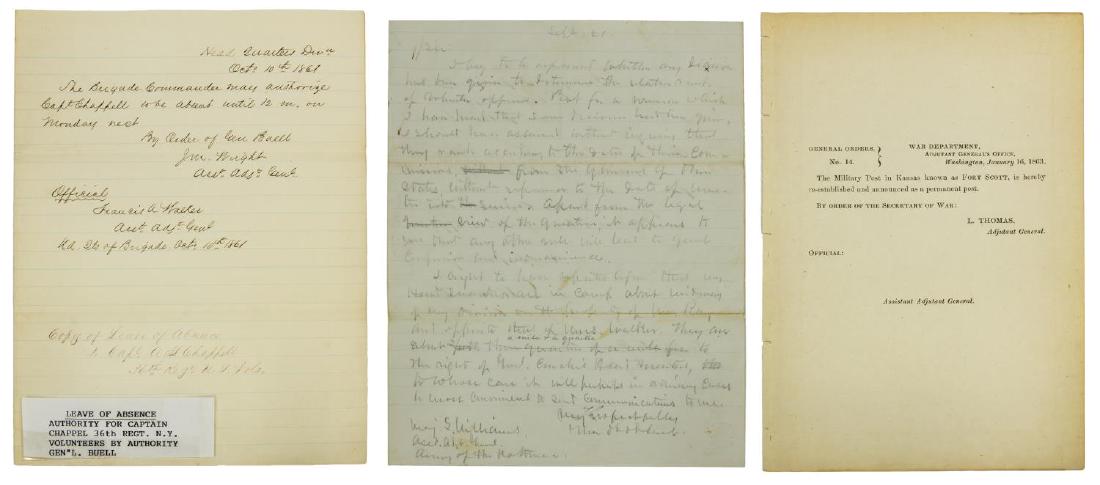 Head Quarters Divn
Octr 10th 1861
The Brigade Commander may authorize
Capt Chappell to be absent until 12 m. on
Monday next
By Order of Gen Buell
J.M. Wright
Asst. Adjt. Genl
Official
Francis A Walker
Asst. Adjt Genl
Hd. Qts of Brigade. Octr 10th 1861
Copy of Leave of Absence
to Capt. A Chappell
36th Regt N.Y. Vols.
LEAVE OF ABSENCE
AUTHORITY FOR CAPTAIN
CHAPPEL 36th REGT. N.Y.
VOLUNTEERS BY AUTHORITY
GEN'L. BUELL
Sept. 21
I beg to be informed whether any decision
has been given to determine the relative rank
of
I should have assumed without inquiry that
they rank according to the date of their Com-
missions, from the Governors of their
States, without reference to the date of
to the service. Apart from the legal
view of the question, it appears to
me that any other rule will lead to great
confusion and inconvenience.
I ought to have reported before that my
Head Quarters are in camp about midway
of my Division on the
and opposite that of Walker. They are
about a mile & a quarter to
the right of Genl.
to whose care it will perhaps in
be most convenient to send communications to me.
Very respectfully
Maj S. Williams
Asst. Adjt. Genl.
Army of the Potomac.
GENERAL ORDERS,
No. 14.
WAR DEPARTMENT,
ADJUTANT GENERAL'S OFFICE,
Washington, January 16, 1863.
The Military Post in Kansas known as FORT SCOTT, is hereby
re-established and announced as a permanent post.
BY ORDER OF THE SECRETARY OF WAR:
L. THOMAS,
Adjutant General.
OFFICIAL:
Assistant Adjutant General.